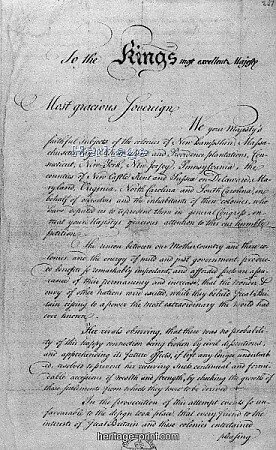 To the Kings most excellent Majesty
Most gracious Sovereign
We your Majesty's
faithful subjects of the colonies of New Hampshire, Massa-
chusetts Rhode Island and Providence plantations, Con-
necticut, New York, New Jersey, Pennsylvania, the
counties of New Castle Kent and Sussex on Delaware, Ma-
ryland, Virginia, North Carolina and South Carolina, in
behalf of ourselves and the inhabitants of these colonies, who
have deputed us to represent them in general Congress, en-
treat your Majesty's gracious attention to this our humble
petition.
The union between our Mother Country and these co-
lonies, and the energy of mild and just government produced
benefits so remarkably important, and afforded such an assu-
rance of their permanency and increase, that the wonder &
envy of other nations were excited, while they beheld Great Bri-
tain rising to a power the most extraordinary the world had
ever known.
Her rivals observing, that there was no probability
of this happy connection being broken by civil dissentions,
and apprehending its future effects, if left any longer undisturb-
ed, resolved to prevent her receiving such continual and formi-
dable accessions of wealth and strength, by checking the growth of
these settlements from which they were to be derived.
In the prosecution of this attempt events so un-
favourable to the design took place, that every friend to the
interests of Great Britain and these colonies entertained
pleasing
heritage-print.com